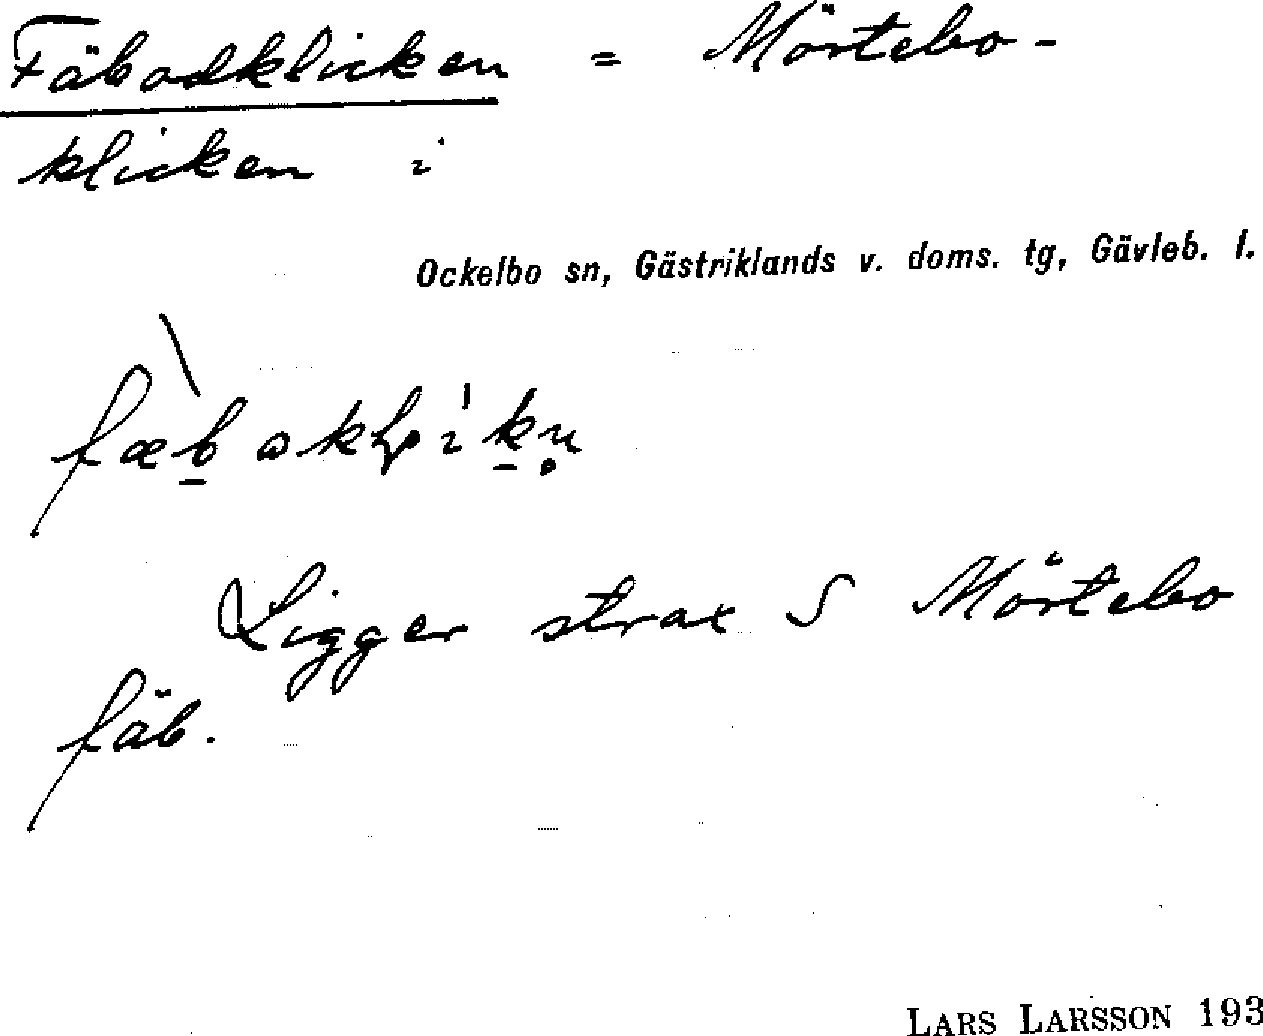 Fäbodklicken = Mörtebo-
klicken i
Ockelbo sn, Gästriklands v. doms. tg, Gävleb. l.
Ligger strax S Mörtebo
fäb.
LARS LARSSON 193